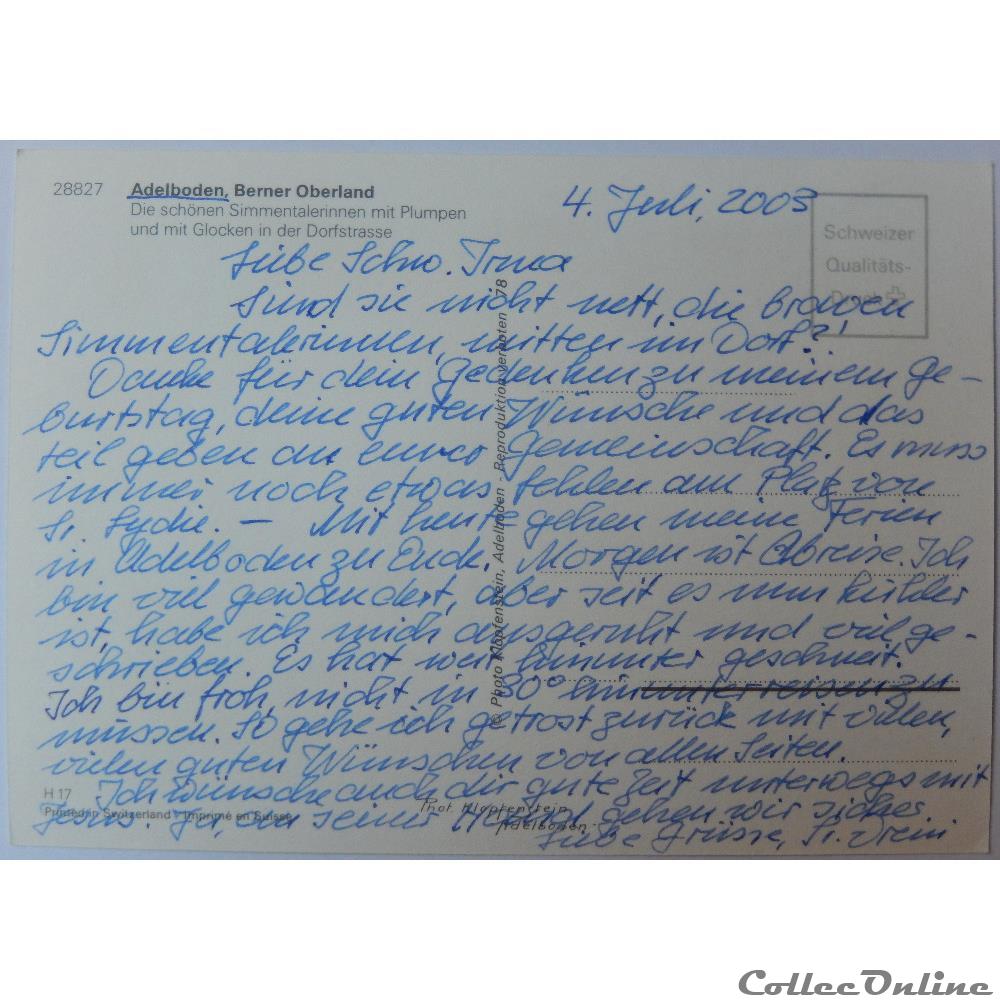 28827 Adelboden, Berner Oberland
Die schönen Simmentalerinnen mit Plumpen
und mit Glocken in der Dorfstrasse
4. Juli, 2003
Schweizer
Qualitäts-
Druck
Liebe Schw. Irma
Sind sie nicht nett, die braven
Simmentalerinnen, mitten im Dorf?!
Danke für dein Gedenken zu meinem Ge-
burtstag, deine guten Wünsche und das
teil geben an eurer Gemeinschaft. Es muss
immer noch etwas fehlen am Platz von
Sr. Lydie. – Mit heute gehen meine Ferien
in Adelboden zu Ende. Morgen ist Abreise. Ich
bin viel gewandert, aber seit es nun kühler
ist, habe ich mich ausgeruht und viel ge-
schrieben. Es hat weit hinunter geschneit.
Ich bin froh, nicht in 30° hinunterreisen zu
müssen. So gehe ich getrost zurück mit vielen,
vielen guten Wünschen von allen Seiten.
Ich wünsche auch dir gute Zeit unterwegs mit
Jesus. Ja, an seiner Hand gehen wir sicher
Liebe Grüsse, Sr. Vreni
© Photo Klopfenstein, Adelboden - Reproduktion verboten 78
H 17
Printed in Switzerland - Imprimé en Suisse
Phot. Klopfenstein
Adelboden
CollecOnline